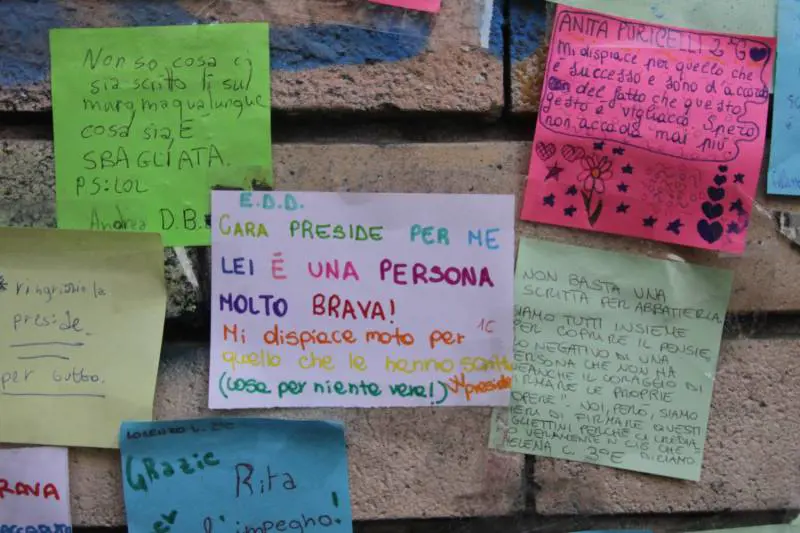 Non so cosa ci
sia scritto lì sul
muro ma qualunque
cosa sia, È
SBAGLIATA.
P.S: LOL
Andrea D.B.
ANITA PURICELLI 2°G
Mi dispiace per quello che
è successo e sono d'accordo
del fatto che questo
gesto è vigliacco spero
non accada mai più.
E.D.D.
CARA PRESIDE PER ME
LEI É UNA PERSONA
MOLTO BRAVA!
1C
Mi dispiace moto per
quello che le hanno scritto
(cose per niente vere!) W preside
ringrazio la
preside
per tutto.
NON BASTA UNA
SCRITTA PER ABBATTERLA
SIAMO TUTTI INSIEME
PER COPRIRE IL PENSIE
O NEGATIVO DI UNA
PERSONA CHE NON HA
NEANCHE IL CORAGGIO DI
FIRMARE LE PROPRIE
"OPERE". NOI, PERÒ, SIAMO
FIERI DI FIRMARE QUESTI
BIGLIETTINI PERCHÉ CI CREDIA
O VERAMENTE IN CIÒ CHE
ELENA C. 3°E DICIAMO
LORENZO
GRAZIE
Rita
l'impegno!
BRAVA